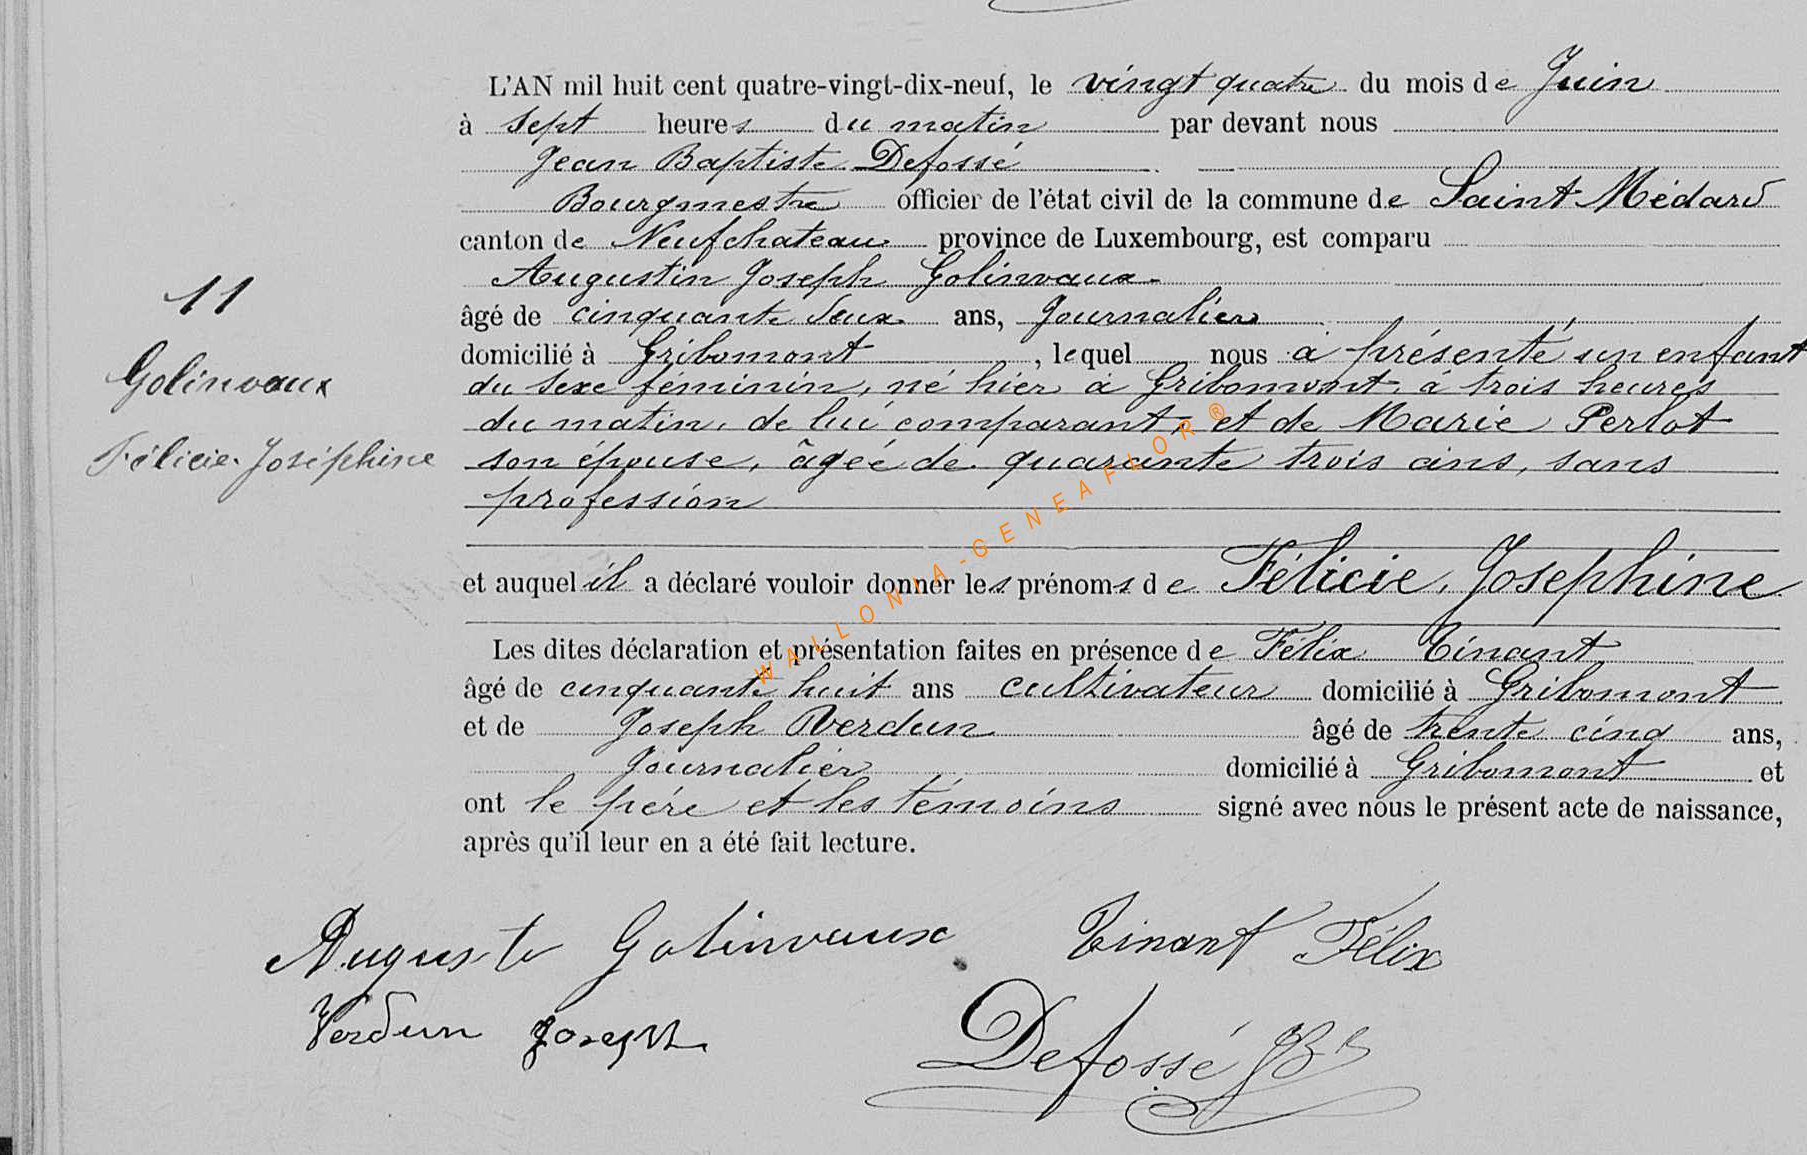 L'AN mil huit cent quatre-vingt-dix-neuf, le vingt quatre du mois de Juin
à sept heures du matin par devant nous
Jean Baptiste Defossé
Bourgmestre officier de l'état civil de la commune de Saint Médard
canton de Neufchateau province de Luxembourg, est comparu
Augustin Joseph Golinvaux
âgé de cinquante deux ans, Journalier
domicilié à Gribomont, lequel nous a présenté un enfant
du sexe féminin, né hier à Gribomont, à trois heures
du matin, de lui comparant, et de Marie Perlot
son épouse, âgée de quarante trois ans, sans
profession
et auquel il a déclaré vouloir donner les prénoms de Félicie, Josephine
Les dites déclaration et présentation faites en présence de Félix Tinant
âgé de cinquante huit ans cultivateur domicilié à Gribomont
et de Joseph Verdun âgé de trente cinq ans,
Journalier domicilié à Gribomont et
ont le père et les témoins signé avec nous le présent acte de naissance,
après qu'il leur en a été fait lecture.
11
Golinvaux
Félicie Joséphine
Auguste Golinvaux Tinant Félix
Verdun Joseph Defossé JBte
WALLONIA-GENEAFLOR ®